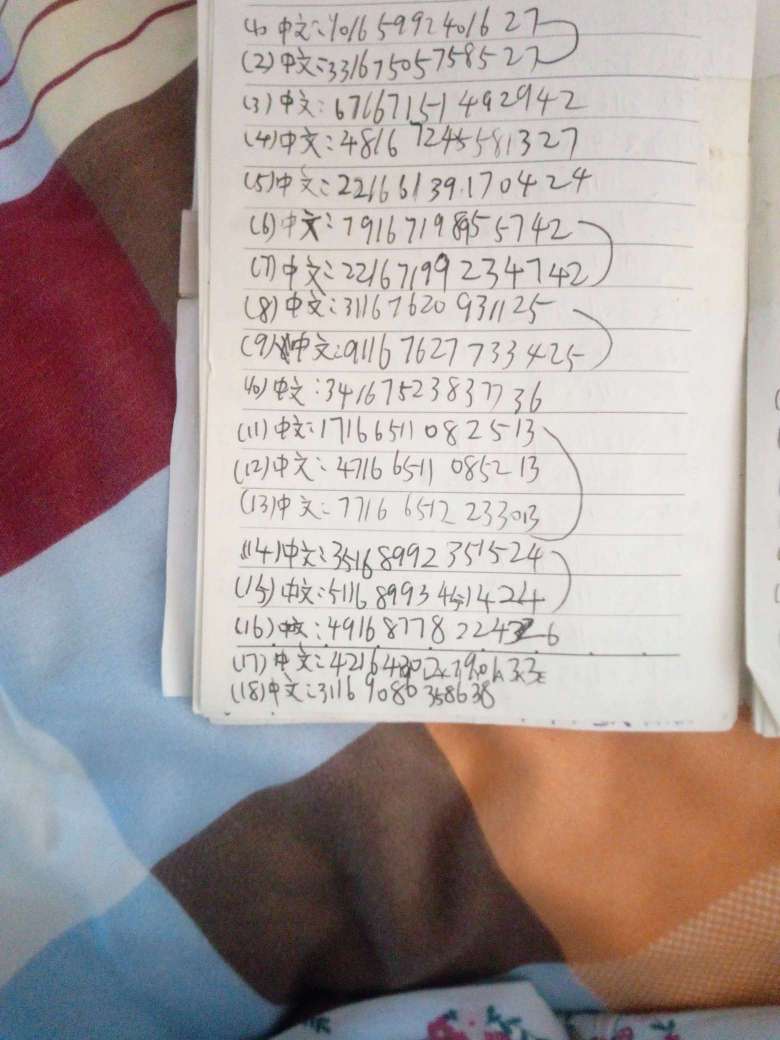 (1) 中文:101659924016 27
(2) 中文:3316750575852 7
(3) 中文:6716715149 2942
(4) 中文:4816 7245581327
(5) 中文:22166139170424
(6) 中文:79167198955742
(7) 中文:22167199234742
(8) 中文:31167620 931125
(9) 中文:91167627733425
(10) 中文:34167523837736
(11) 中文:17166511082513
(12) 中文:47166511 085213
(13) 中文:7716 6512 233013
(14) 中文:35168992351524
(15) 中文:51168993451424
(16) 中文:49168778 2243 26
(17) 中文:
(18) 中文:31169086358638